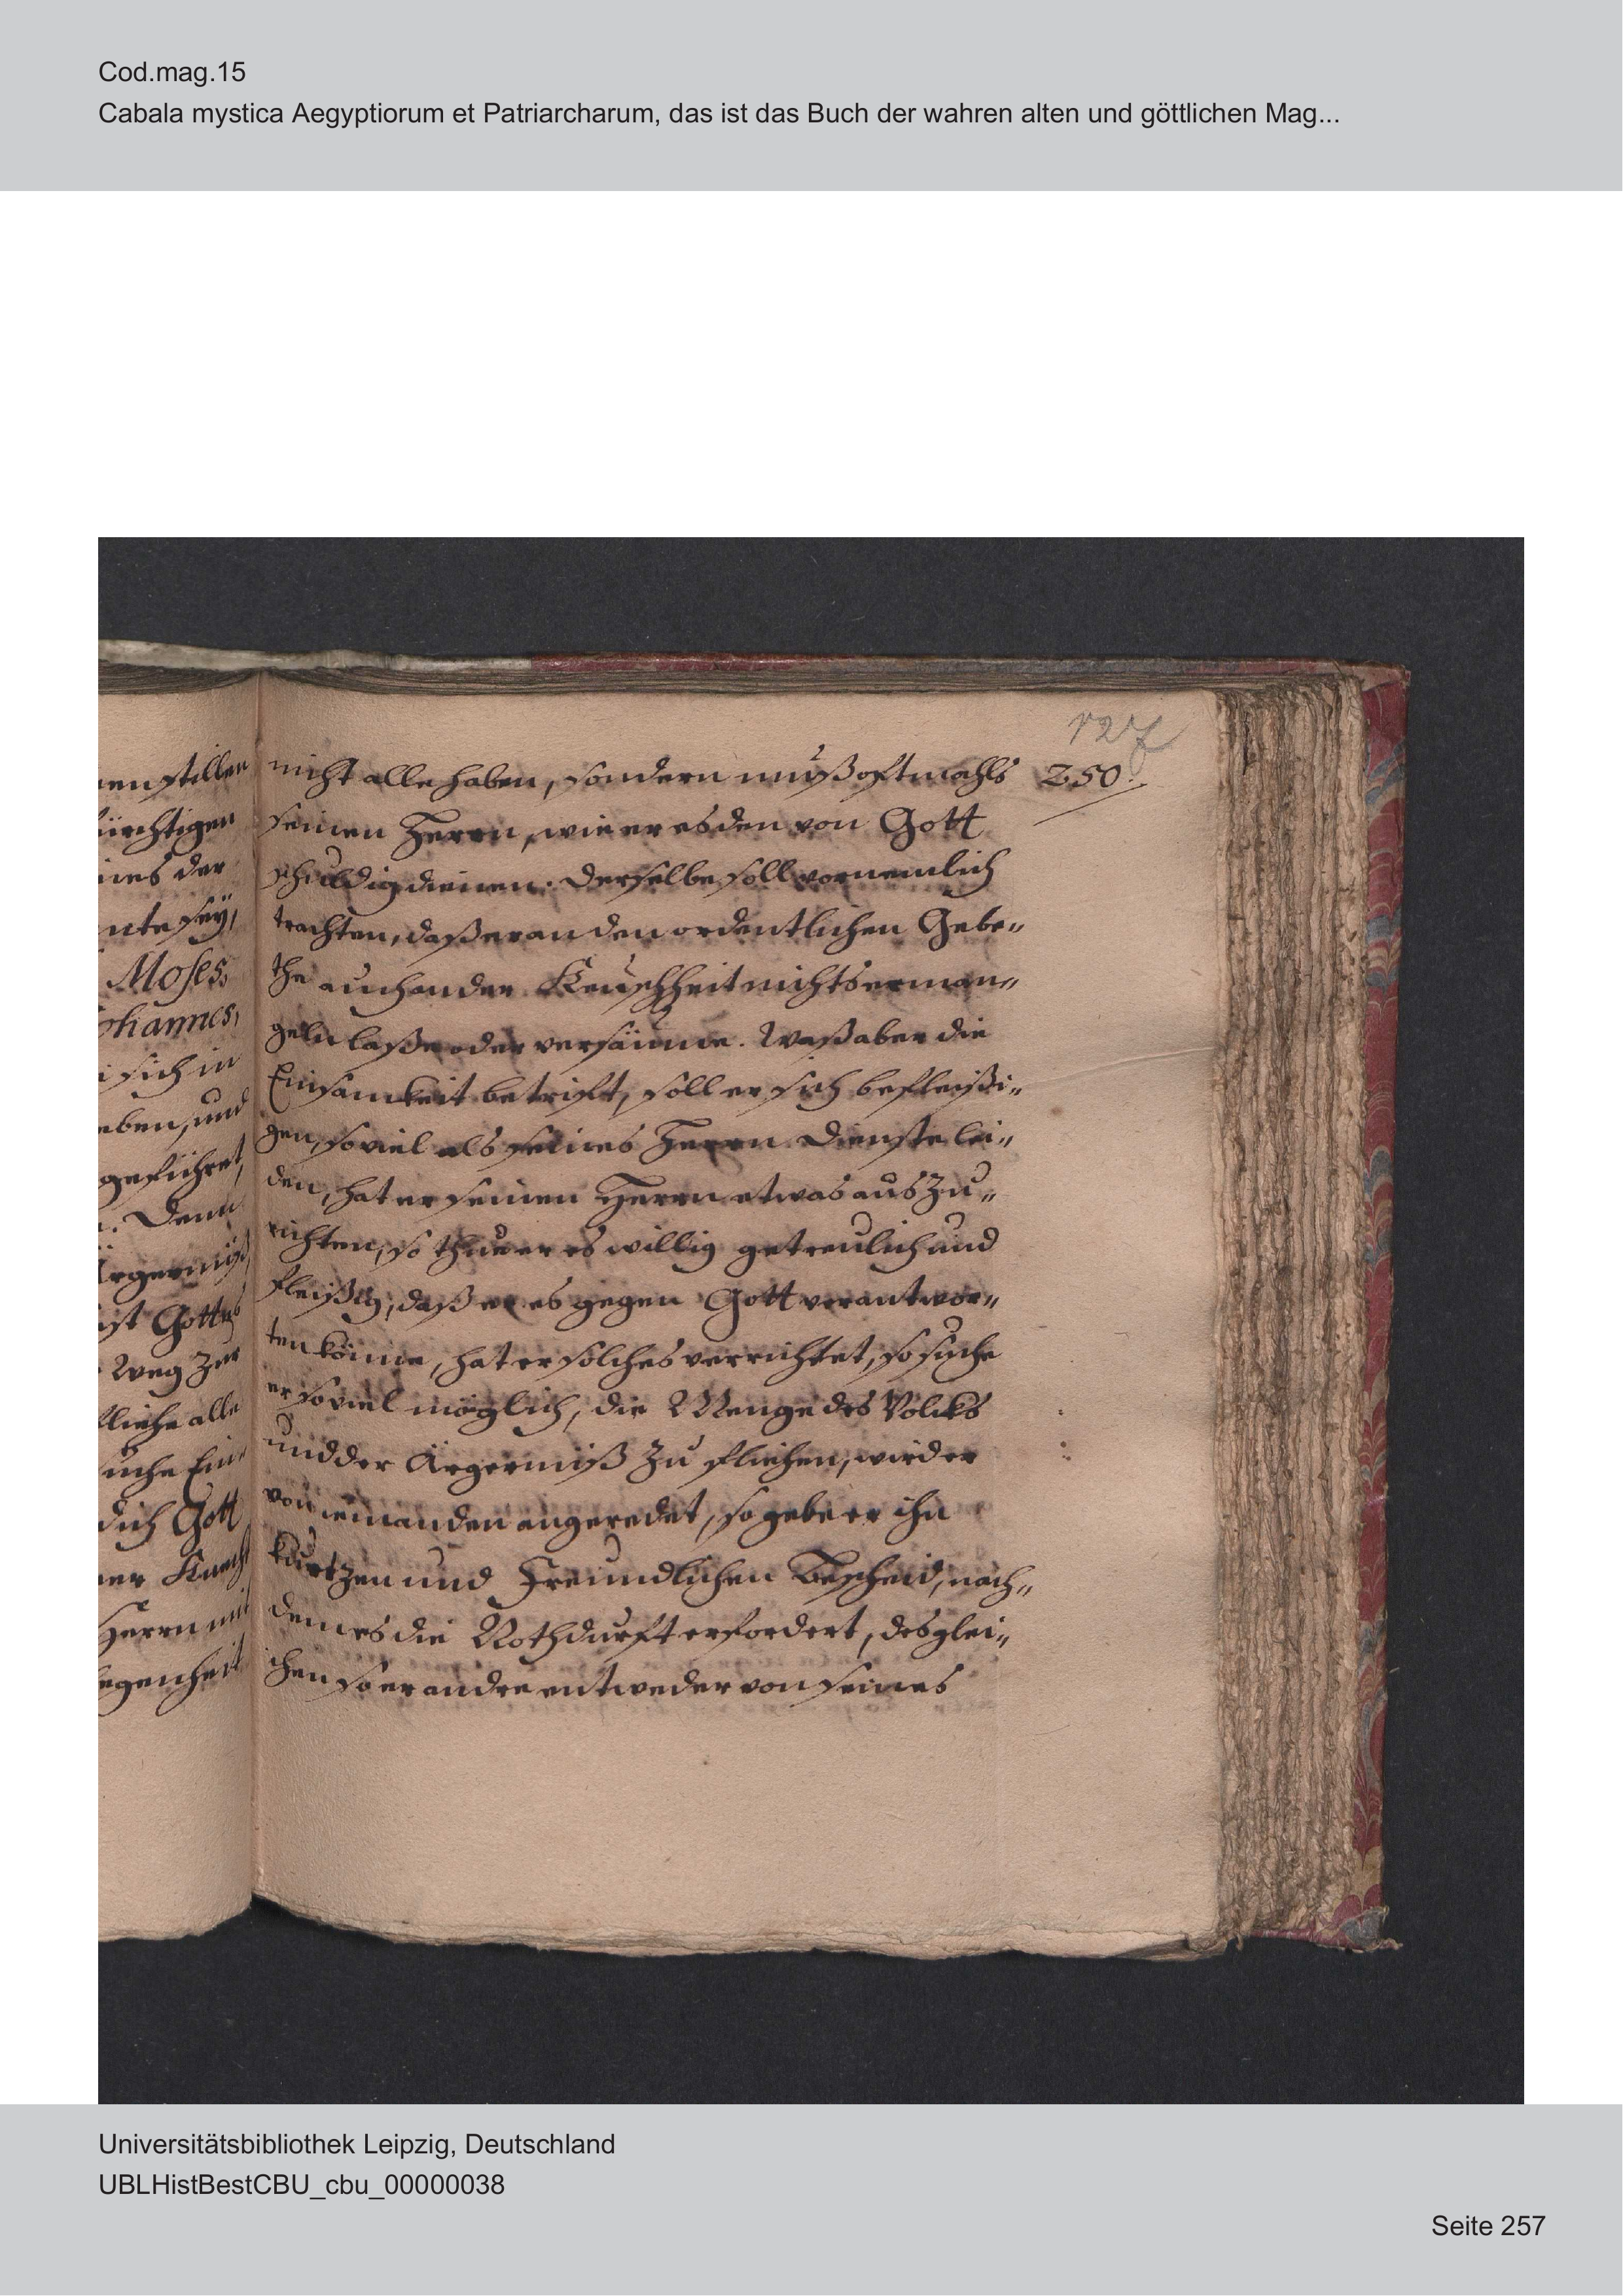 Cod.mag.15
Cabala mystica Aegyptiorum et Patriarcharum, das ist das Buch der wahren alten und göttlichen Mag...
127
250.
nicht alle haben, sondern muß oftmahls
seinen Herrn, wie er es den von Gott
schuldig dienen. Derselbe soll vornemlich
trachten, daß er an den ordentlichen Gebe„
the auch an der Keuschheit nichts erman„
geln laße oder versäume. Waß aber die
Einsamkeit betrift, soll er sich befleißi„
gen, so viel als seines Herrn Dienste lei„
den, hat er seinen Herrn etwas auszu„
richten, so thue er es willig getreulich und
fleißig, daß er es gegen Gott verantwor„
ten könne, hat er solches verrichtet, so suche
er so viel möglich, die Menge des Volcks
und der Ärgerniß zu fliehen, wird er
von iemanden angeredet, so gebe er ihn
kurtzen und Freundlichen Bescheid, nach„
dem es die Nothdurft erfordert, desglei„
chen so er andre entweder von seines
en stillen
ürchtigen
nes der
nte sey,
Moses,
ohannes,
sich in
eben, und
geführet,
. Denn
Ärgerniß,
ist Gottes
Weg zur
fliehe alle
suche Ein
dich Gott
er Knecht
Herrn mit
egenheit
Universitätsbibliothek Leipzig, Deutschland
UBLHistBestCBU_cbu_00000038
Seite 257